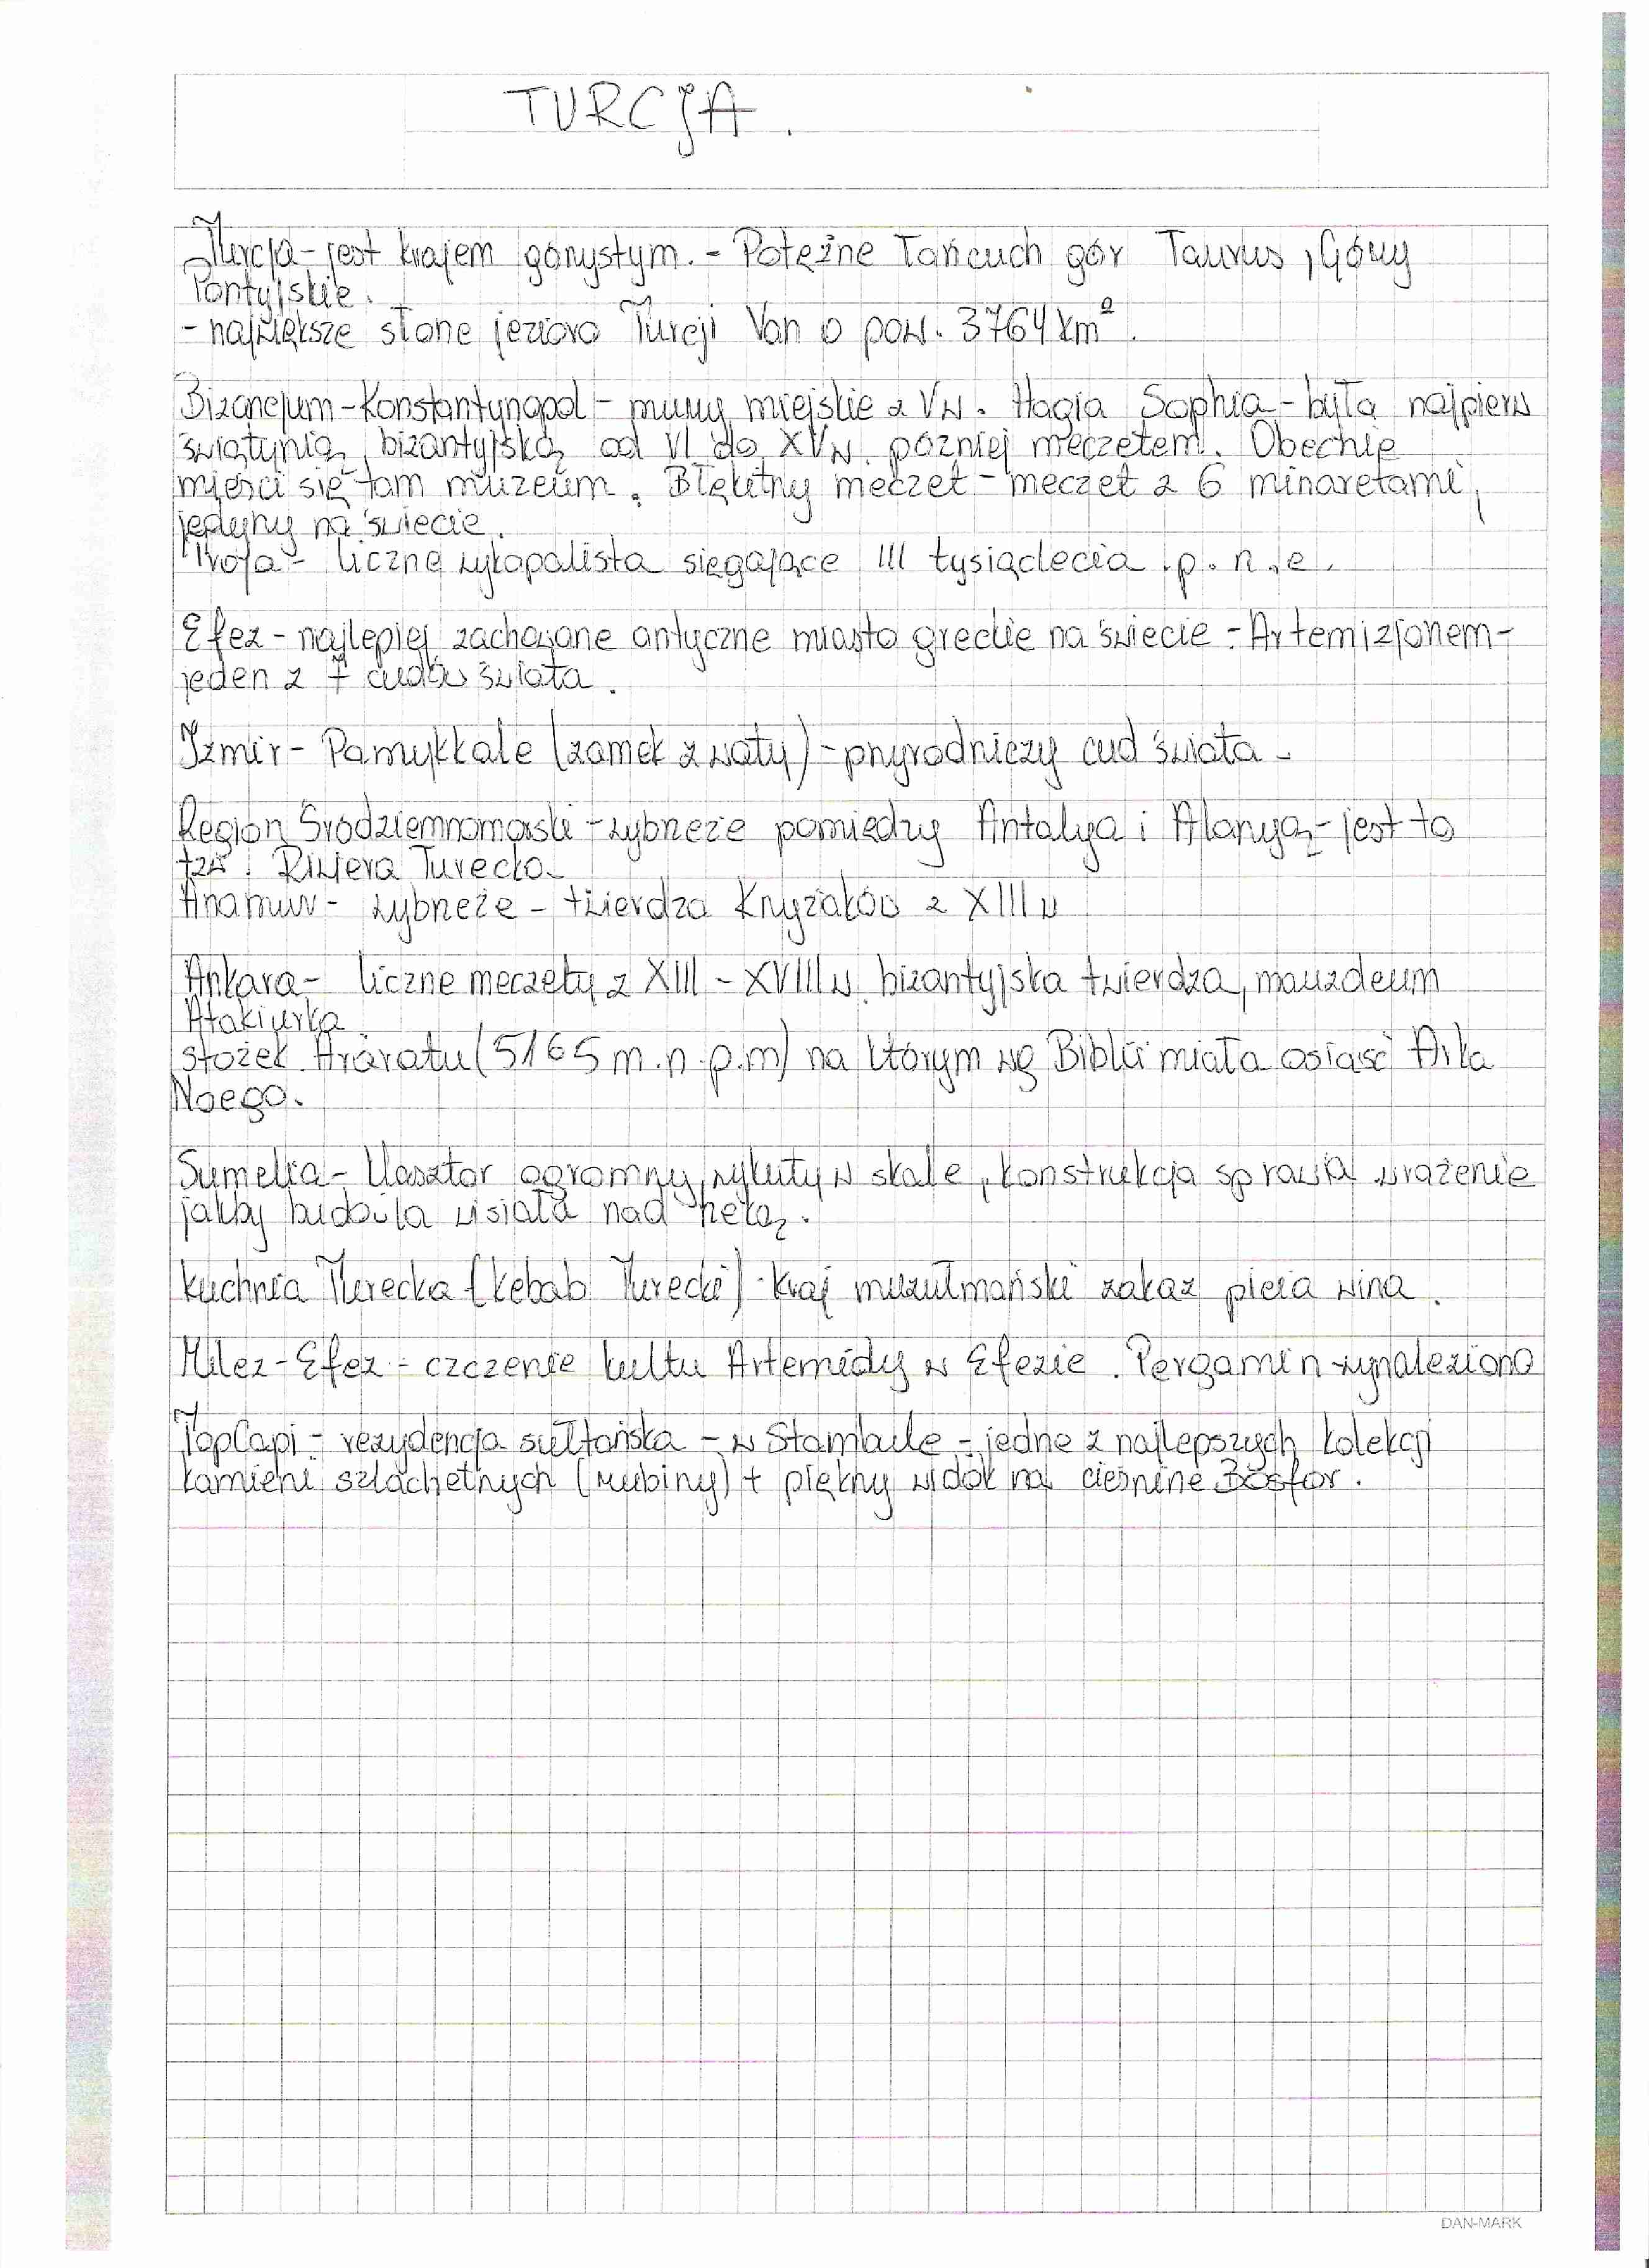 TURCJA.
Turcja - jest krajem górzystym. - Potężne Łańcuch gór Taurus, Góry
Pontyjskie.
- największe słone jezioro Turcji Van o pow. 3764 km²
Bizancjum - Konstantynopol - mury miejskie z V w. Hagia Sophia - była najpierw
świątynią bizantyjską od VI do XV w. pózniej meczetem. Obecnie
mieści się tam muzeum. Błękitny meczet - meczet z 6 minaretami,
jedyny na świecie.
Troja - liczne wykopaliska sięgające III tysiąclecia p.n.e.
Efez - najlepiej zachowane antyczne miasto greckie na świecie - Artemizjonem -
jeden z 7 cudów świata.
Izmir - Pamykkale (zamek z waty) - przyrodniczy cud świata -
Region Śródziemnomorski - wybrzeże pomiędzy Antalya i Alanyą - jest to
tzw. Riwiera Turecka.
Anamur - wybrzeże - twierdza Krzyżaków z XIII w
Ankara - liczne meczety z XIII - XVIII w. bizantyjska twierdza, mauzoleum
Atakiurka
stożek Araratu (5165 m.n.p.m) na którym wg Biblii miała osiąść Arka
Noego.
Sumelia - klasztor ogromny, wykuty w skale, konstrukcja sprawia wrażenie
jakby budowla wisiała nad rzeką.
Kuchnia Turecka - (kebab Turecki) - Kraj muzułmański zakaz picia wina.
Milez - Efez - czczenie kultu Artemidy w Efezie. Pergamin wynaleziono
TopCapi - rezydencja sułtańska - w Stambule - jedne z najlepszych kolekcji
kamieni szlachetnych (rubiny) + piękny widok na cieśnine Bosfor.
DAN-MARK